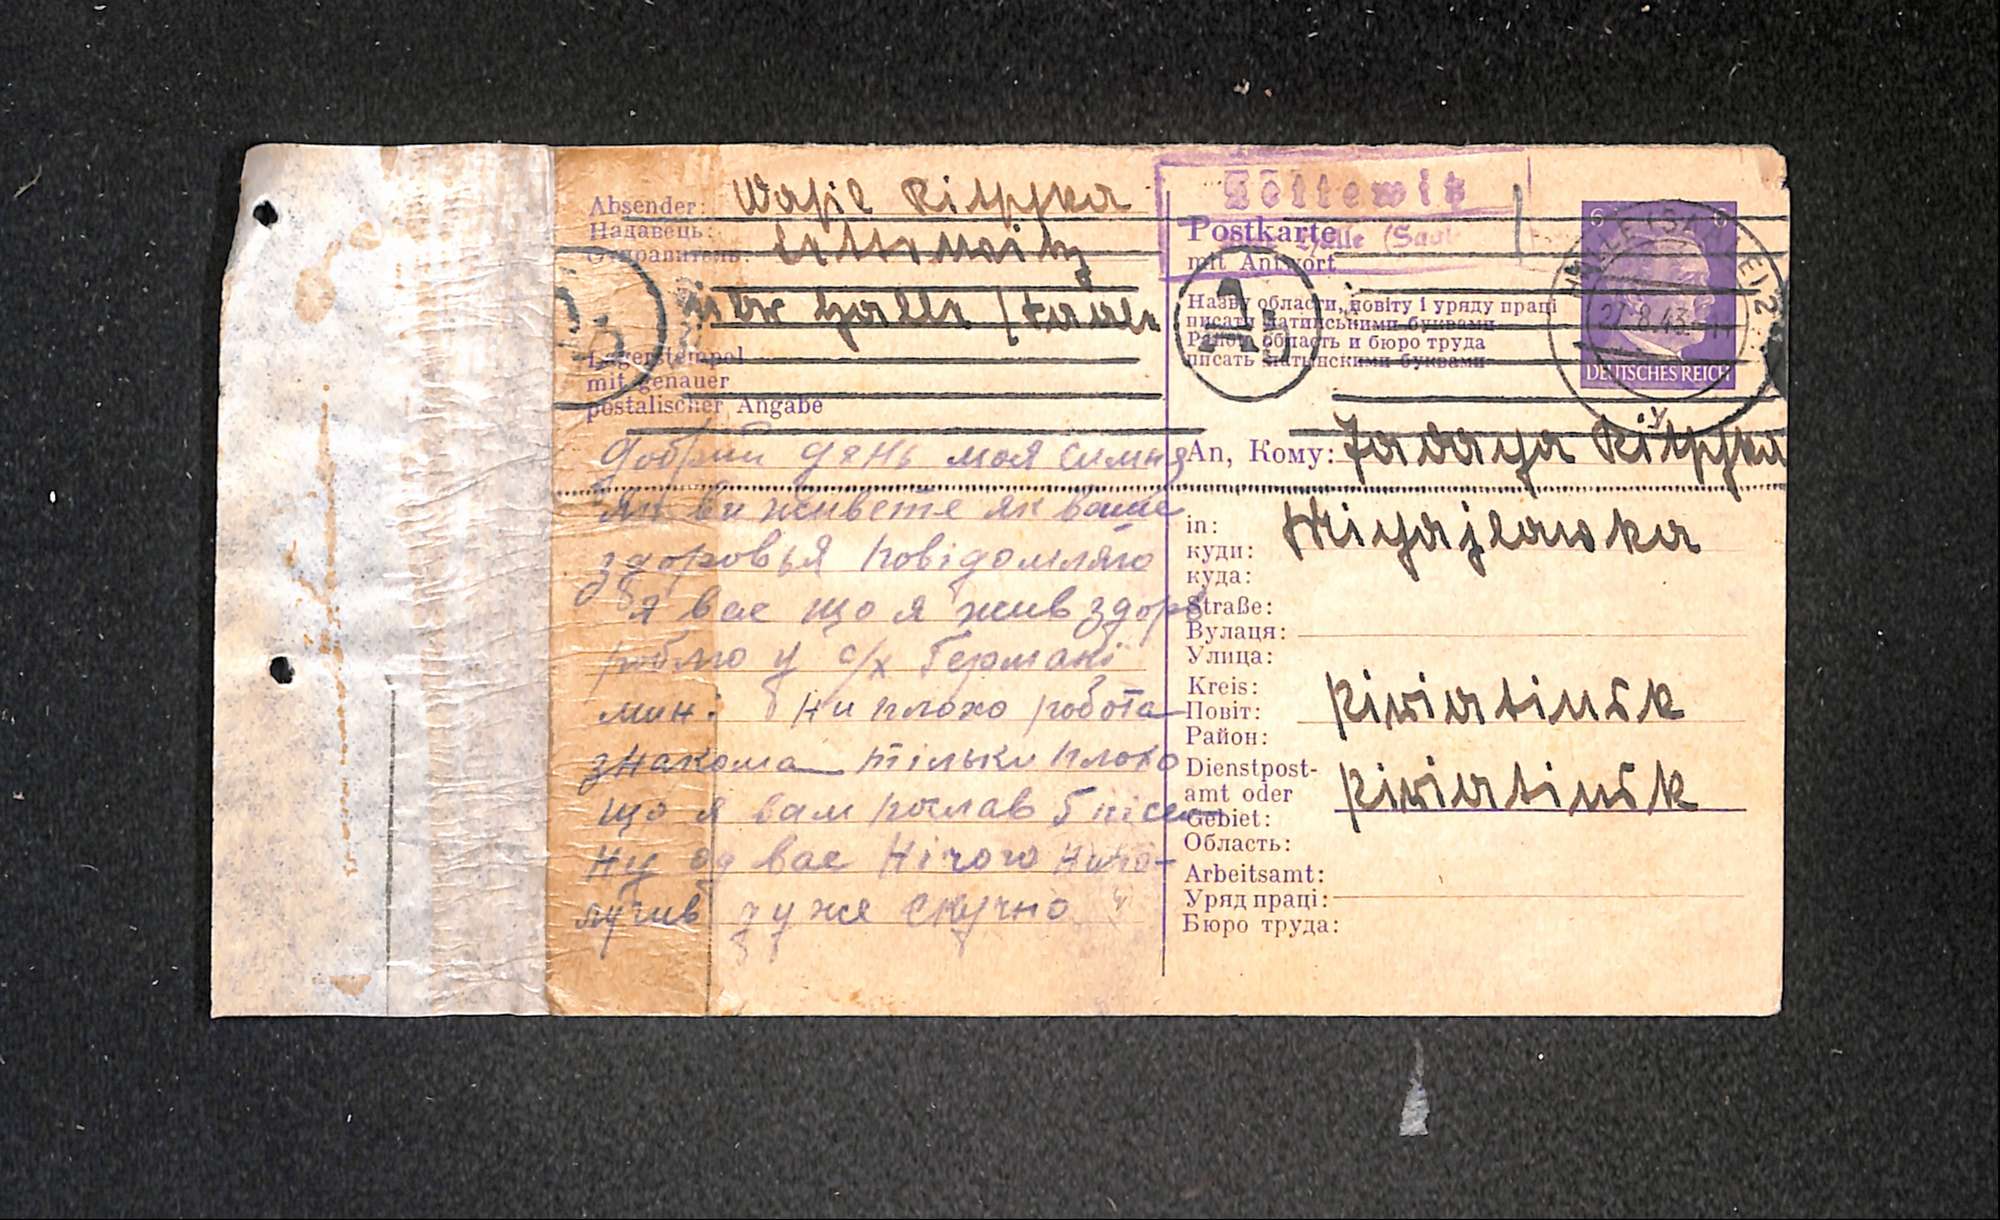 Absender: Wasil
Надавець:
Отправитель:
über Halle / Saale
Lagerstempel
mit genauer
postalischer Angabe
Добрий день моя симня
як ви живете як ваше
здоровья повідомляю
я вас що я жив здоров
роблю у с/х Германі
мині ни плохо робота
знакома тільки плохо
що я вам послав 5 писем
ну од вас нічого ниполучив дуже скучно
Zöllewitz
Halle (Saale
Postkarte
mit Antwort
Назву области, повіту і уряду праці
писати латинськими буквами
Район, область и бюро труда
писать латынскими буквами
Ab
6 6
DEUTSCHES REICH
HALLE (SAALE) 2
27.8.43
An, Кому:
in: Michajlowka
куди:
куда:
Straße:
Вулаця:
Улица:
Kreis: Piriatinsk
Повіт:
Район:
Dienstpost- Piriatinsk
amt oder
Gebiet:
Область:
Arbeitsamt:
Уряд праці:
Бюро труда: